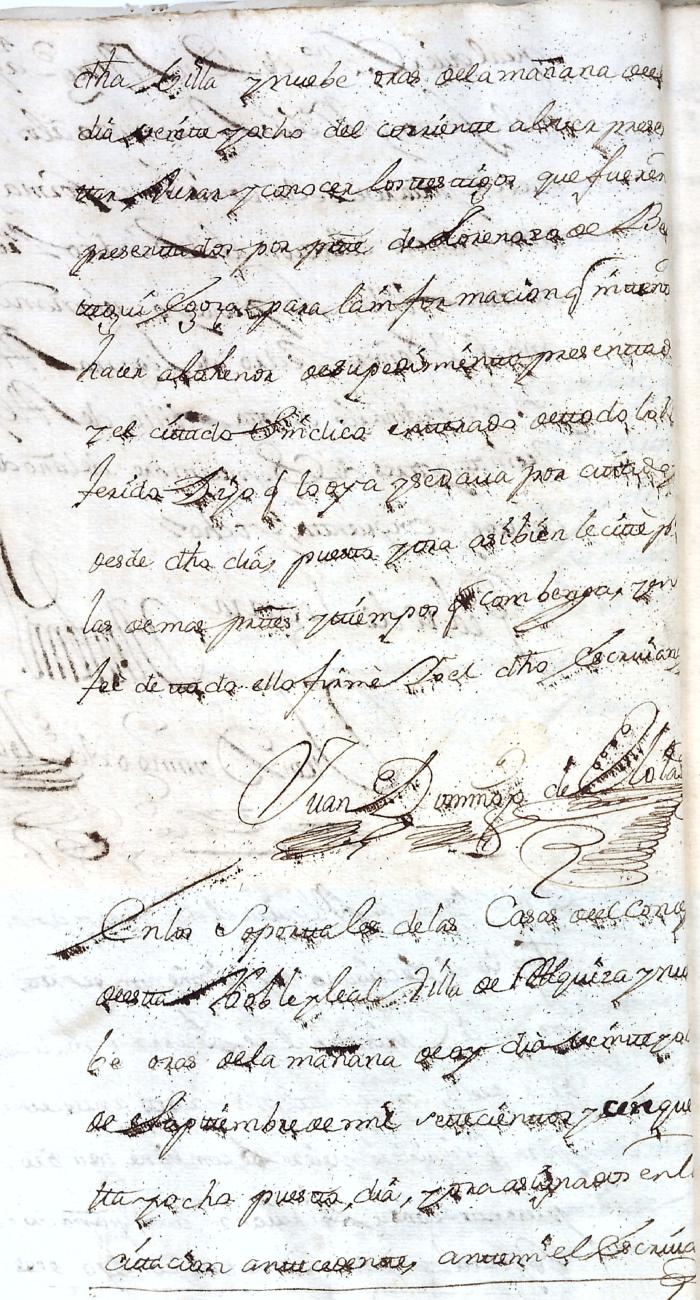 dha Villa y nuebe oras de la mañana del
dia veinte y ocho del corriente a ber presen
ttar, Jurar y conocer los ttesttigos que fueren
presenttados por partte de Lorenza de Be
ttegui Egoza, para la informacion q̃ inttentto
hacer al thenor de su pedimentto presenttad
y el cittado Sindico entterado de ttodo lo Re
ferido Dijo q̃ lo oya y se daua por cittado
desde dha dia, puestto y ora asibien le citte p
las demas parttes y ttiempos q̃ combenga, y en
fee de ttodo ello firmè Yo el dho Escriuan
Juan Domingo de
En los Soporttales de las Casas del conce
de estta Noble y leal Villa de Alquiza y nue
be oras de la mañana de oy dia veintte y o
de Septtiembre de mil settecienttos y cinque
tta y ocho puestto, dia, y ora asignados en l
cittacion anttecedentte, anttemi el Escriua